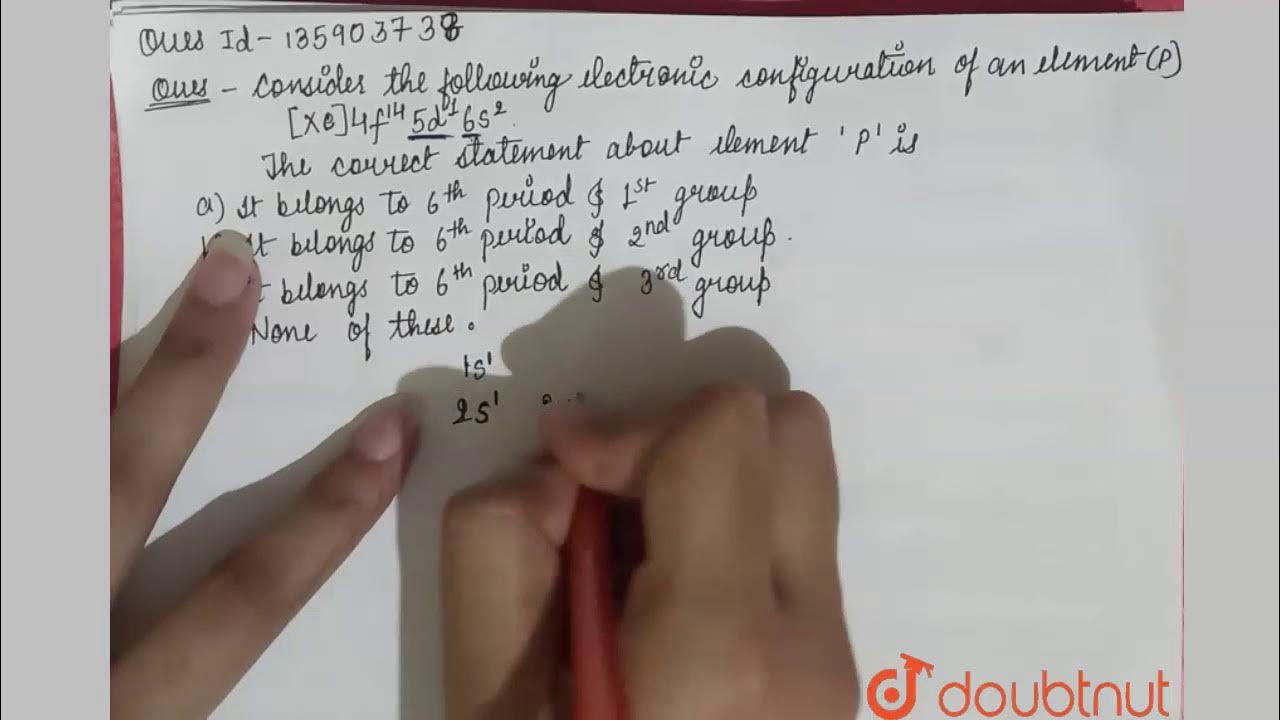 Ques Id - 135903738
Ques - Consider the following electronic configuration of an element (P)
[Xe]4f¹⁴ 5d¹ 6s².
The correct statement about element 'P' is
a) It belongs to 6th period & 1st group
It belongs to 6th period & 2nd group.
belongs to 6th period & 3rd group
None of these.
1s¹
2s¹
doubtnut